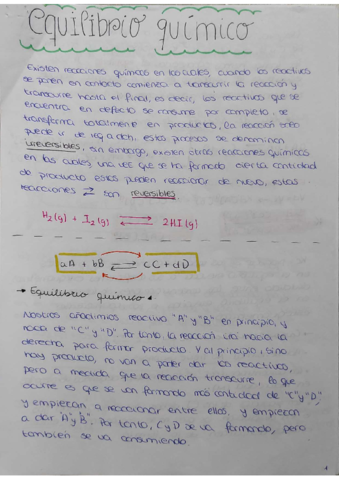 equilibrio químico
Existen reacciones químicas en las cuales, cuando los reactivos
se ponen en contacto comienza a transcurrir la reacción y
transcurre hasta el final, es decir, los reactivos que se
encuentra en defecto se consume por completo. se
transforma totalmente en productos, (la reacción solo
puede ir de izq a dch), estos procesos se denominan
irreversibles, sin embargo, existen otras reacciones químicas
en las cuales, una vez que se ha formado cierta cantidad
de producto estos pueden reaccionar de nuevo, estas
reacciones ⇄ son reversibles
H₂(g) + I₂(g) ⇄ 2HI(g)
aA + bB ⇄ cC + dD
→ Equilibrio químico
Nosotros añadimos reactivo "A" y "B" en principio, y
nada de "C" y "D". Por tanto, la reacción va hacia la
derecha para formar producto. Y al principio, si no
hay producto, no van a poder dar los reactivos,
pero a medida que la reacción transcurre, lo que
ocurre es que se van formando más cantidad de "C" y "D",
y empiezan a reaccionar entre ellos, y empiezan
a dar "A" y "B". Por tanto, C y D se va formando, pero
también se va consumiendo.